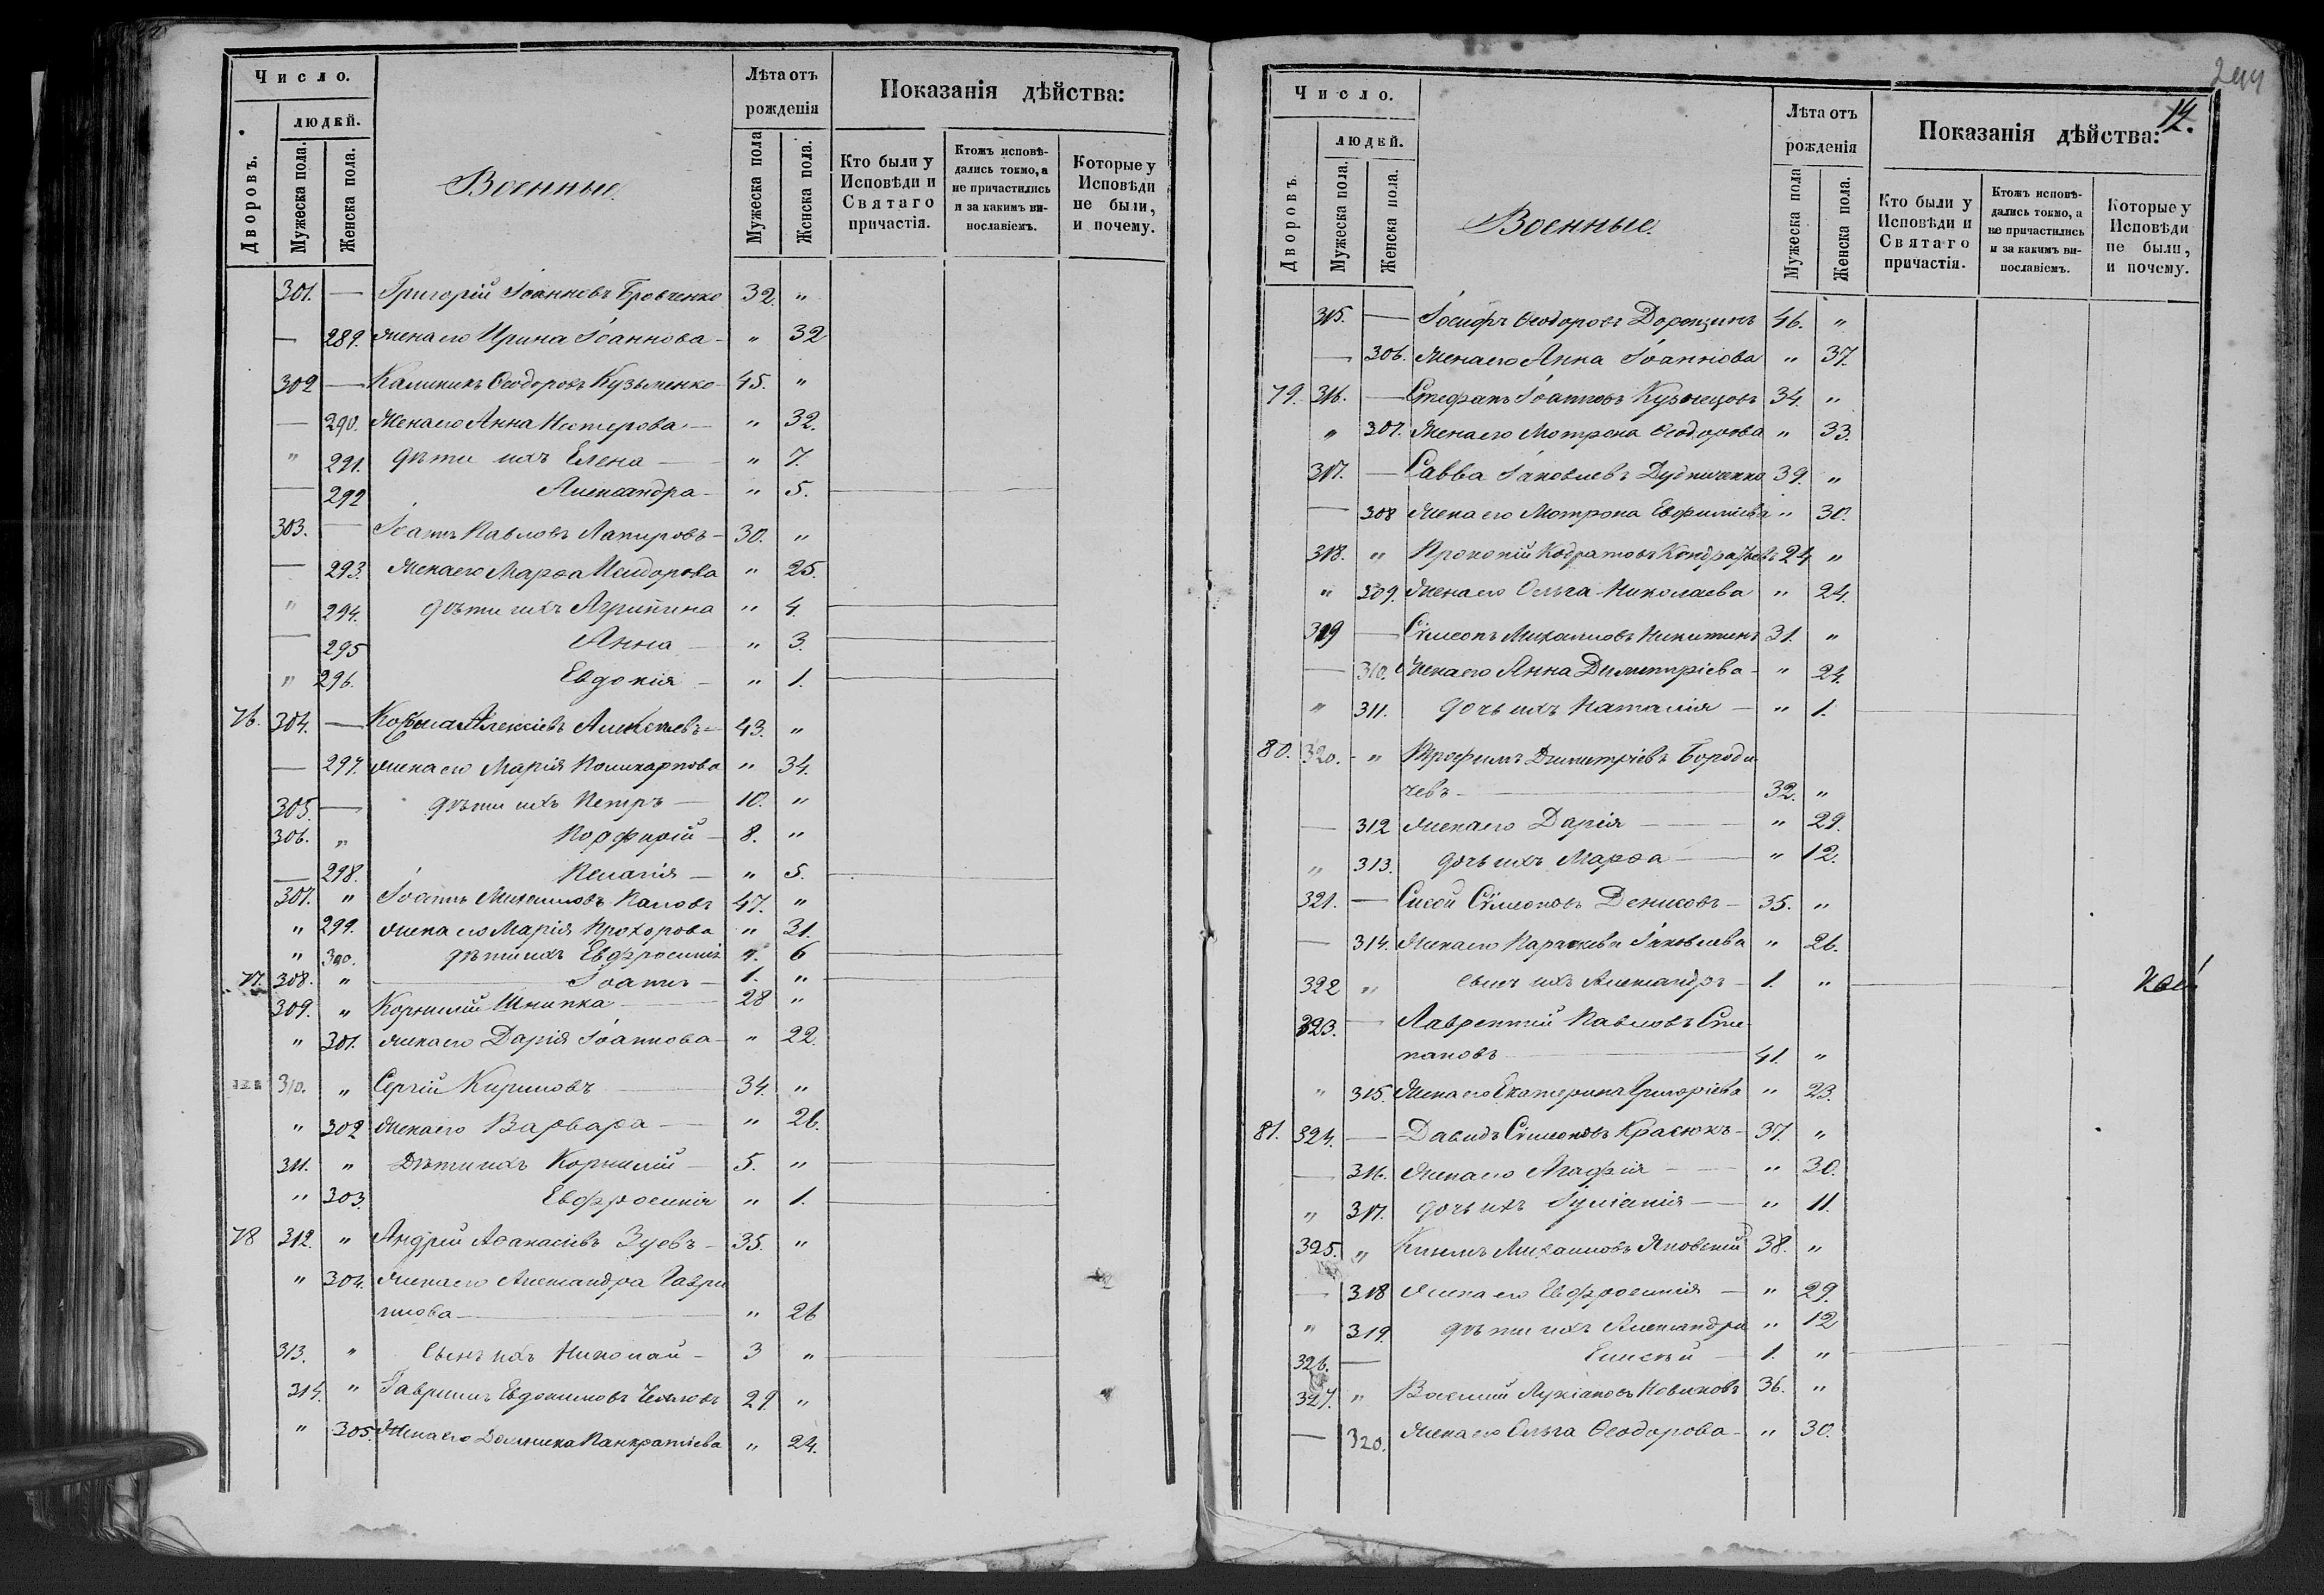 Число.
Лѣта отъ рожденія
Показанія дѣйства:
людей.
Дворовъ.
Мужеска пола.
Женска пола.
Военные.
Мужеска пола
Женска пола.
Кто были у Исповѣди и Святаго причастія.
Ктожъ исповѣдались токмо, а не причастились и за какимъ винословіемъ.
Которые у Исповѣди не были, и почему.
301. — Григорій Іоанновъ Бровченко 32. "
— 289. жена его Ирина Іоаннова - " 32
302 — Калиникъ Ѳеодоровъ Кузьменко - 45. "
— 290. Жена его Анна Нестерова — " 32.
" 291. дѣти ихъ Елена — " 7.
— 292 Александра - " 5.
303. — Іоаннъ Павловъ Лапировъ - 30. "
— 293. Жена его Марѳа Исидорова " 25.
" 294. дѣти ихъ Агрипина " 4.
— 295 Анна — " 3.
" 296. Евдокія - " 1.
76. 304. — Козьма Алексіевъ Алексѣевъ - 43. "
— 297. жена его Марія Поликарпова " 34.
305. — дѣти ихъ Петръ — 10. "
306. " Порфирій - 8. "
— 298. Пелагія — " 5.
307. " Іоаннъ Михаиловъ Паповъ 47. "
" 299. жена его Марія Прохорова " 31.
" 300. дѣти ихъ Евфросинія " 6
77. 308. " Іоаннъ - 1. "
309. " Корнилій Шнипка — 28 "
" 301. жена его Дарія Іоаннова - " 22.
310. " Сергій Кириловъ — 34. "
" 302 жена его Варвара — " 26.
311. " Дѣти ихъ Корнилій - 5. "
" 303. Евфросинія " 1.
78 312. " Андрей Аѳанасіевъ Зуевъ - 35. "
" 304. жена его Александра Гаври
илова — " 26
313. " Сынъ ихъ Николай - 3 "
314. " Гавріилъ Евдокимовъ 29. "
" 305. Жена его Домника Панкратіева " 24.
244
14.
Число.
Лѣта отъ рожденія
Показанія дѣйства:
людей.
Дворовъ.
Мужеска пола.
Женска пола.
Военные.
Мужеска пола
Женска пола.
Кто были у Исповѣди и Святаго причастія.
Ктожъ исповѣдались токмо, а не причастились и за какимъ винословіемъ.
Которые у Исповѣди не были, и почему.
315. — Іосифъ Ѳеодоровъ 46. "
— 306. Жена его Анна Іоаннова " 37.
79. 316. — Стефанъ Іоанновъ Кузнецовъ 34. "
" 307. Жена его Мотрона Ѳеодорова " 33.
317. — Савва Іаковлевъ Дудниченко 39. "
— 308 Жена его Мотрона Евфиміева " 30.
318. " Прокопій Кодратовъ Кондратьевъ 24 "
" 309. Жена его Ольга Николаева " 24.
319 — Сѵмеонъ Михаиловъ Никитинъ 31. "
— 310. Жена его Анна Димитріева - " 24.
" 311. дочь ихъ Наталія — " 1.
80. 320. - " Трофимъ Димитріевъ Бороди
чевъ — 32. "
— 312 жена его Дарія — " 29.
" 313. дочь ихъ Марѳа — " 12.
321. — Сисой Сѵмеоновъ Денисовъ - 35. "
— 314. Жена его Параскева Іаковлева " 26.
322 " сынъ ихъ Александръ - 1. "
323. — Лаврентій Павловъ Сте
пановъ — 41. "
" 315. Жена его Екатерина Григоріева " 23.
81. 324. — Давидъ Сѵмеоновъ Красюкъ - 37. "
— 316. Жена его Агафія — " 30.
" 317. дочь ихъ Іуліанія — " 11.
325. " Климъ Михаиловъ Яновскій 38. "
— 318 жена его Евфросинія — " 29.
" 319. дѣти ихъ Александра " 12
326. — Елисѣй — 1. "
327. " Василій Лукіановъ Новиковъ 36. "
— 320. жена его Ольга Ѳеодорова - " 30.